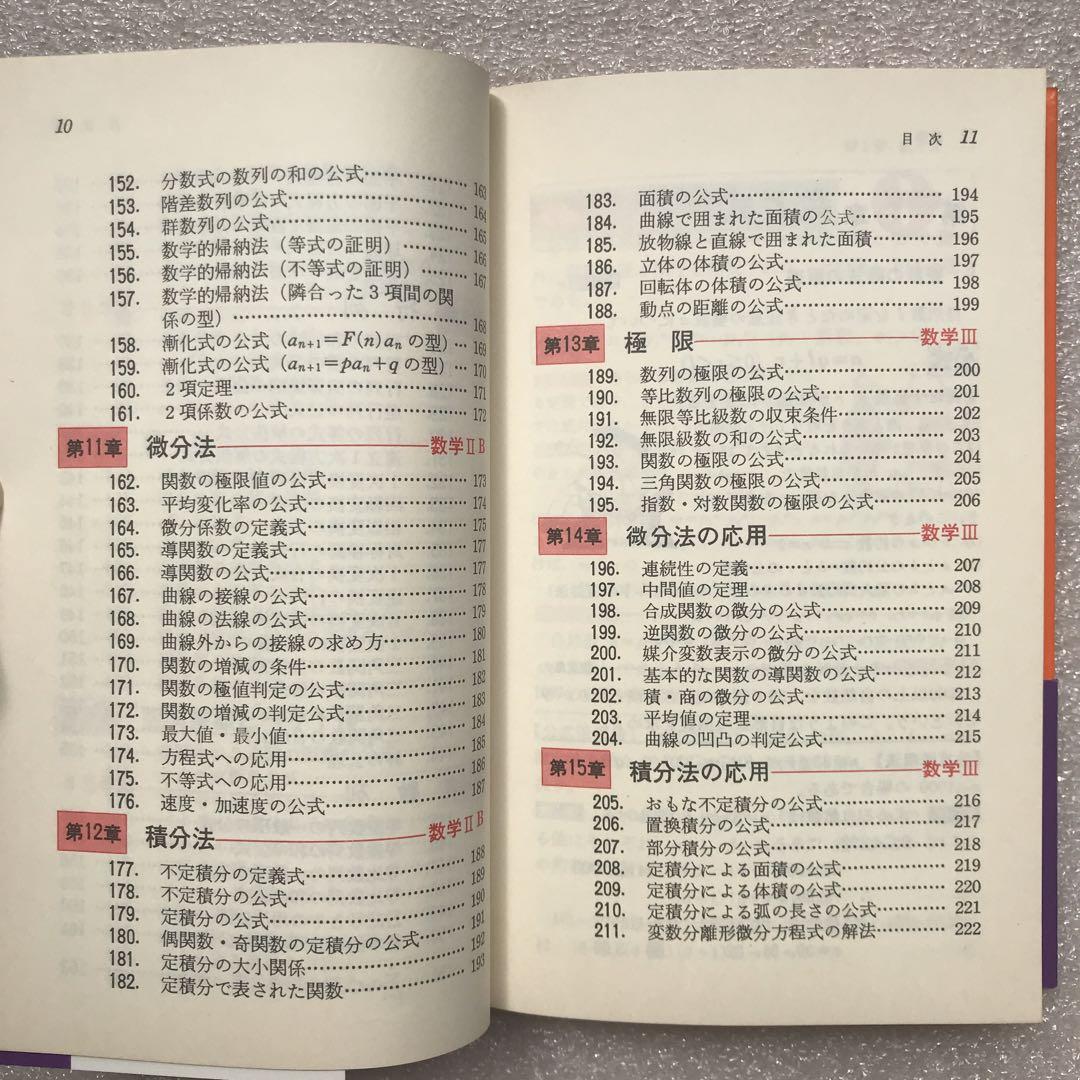 10
152. 分数式の数列の和の公式……………163
153. 階差数列の公式……………164
154. 群数列の公式……………165
155. 数学的帰納法（等式の証明）……………166
156. 数学的帰納法（不等式の証明）……………167
157. 数学的帰納法（隣合った3項間の関
係の型）……………168
158. 漸化式の公式（aₙ₊₁＝F(n)aₙの型）…169
159. 漸化式の公式（aₙ₊₁＝paₙ＋qの型）…170
160. 2項定理……………171
161. 2項係数の公式……………172
第11章 微分法 数学ⅡB
162. 関数の極限値の公式……………173
163. 平均変化率の公式……………174
164. 微分係数の定義式……………175
165. 導関数の定義式……………177
166. 導関数の公式……………177
167. 曲線の接線の公式……………178
168. 曲線の法線の公式……………179
169. 曲線外からの接線の求め方……………180
170. 関数の増減の条件……………181
171. 関数の極値判定の公式……………182
172. 関数の増減の判定公式……………183
173. 最大値・最小値……………184
174. 方程式への応用……………185
175. 不等式への応用……………186
176. 速度・加速度の公式……………187
第12章 積分法 数学ⅡB
177. 不定積分の定義式……………188
178. 不定積分の公式……………189
179. 定積分の公式……………190
180. 偶関数・奇関数の定積分の公式……………191
181. 定積分の大小関係……………192
182. 定積分で表された関数……………193
目 次 11
183. 面積の公式……………194
184. 曲線で囲まれた面積の公式……………195
185. 放物線と直線で囲まれた面積……………196
186. 立体の体積の公式……………197
187. 回転体の体積の公式……………198
188. 動点の距離の公式……………199
第13章 極 限 数学Ⅲ
189. 数列の極限の公式……………200
190. 等比数列の極限の公式……………201
191. 無限等比級数の収束条件……………202
192. 無限級数の和の公式……………203
193. 関数の極限の公式……………204
194. 三角関数の極限の公式……………205
195. 指数・対数関数の極限の公式……………206
第14章 微分法の応用 数学Ⅲ
196. 連続性の定義……………207
197. 中間値の定理……………208
198. 合成関数の微分の公式……………209
199. 逆関数の微分の公式……………210
200. 媒介変数表示の微分の公式……………211
201. 基本的な関数の導関数の公式……………212
202. 積・商の微分の公式……………213
203. 平均値の定理……………214
204. 曲線の凹凸の判定公式……………215
第15章 積分法の応用 数学Ⅲ
205. おもな不定積分の公式……………216
206. 置換積分の公式……………217
207. 部分積分の公式……………218
208. 定積分による面積の公式……………219
209. 定積分による体積の公式……………220
210. 定積分による弧の長さの公式……………221
211. 変数分離形微分方程式の解法……………222